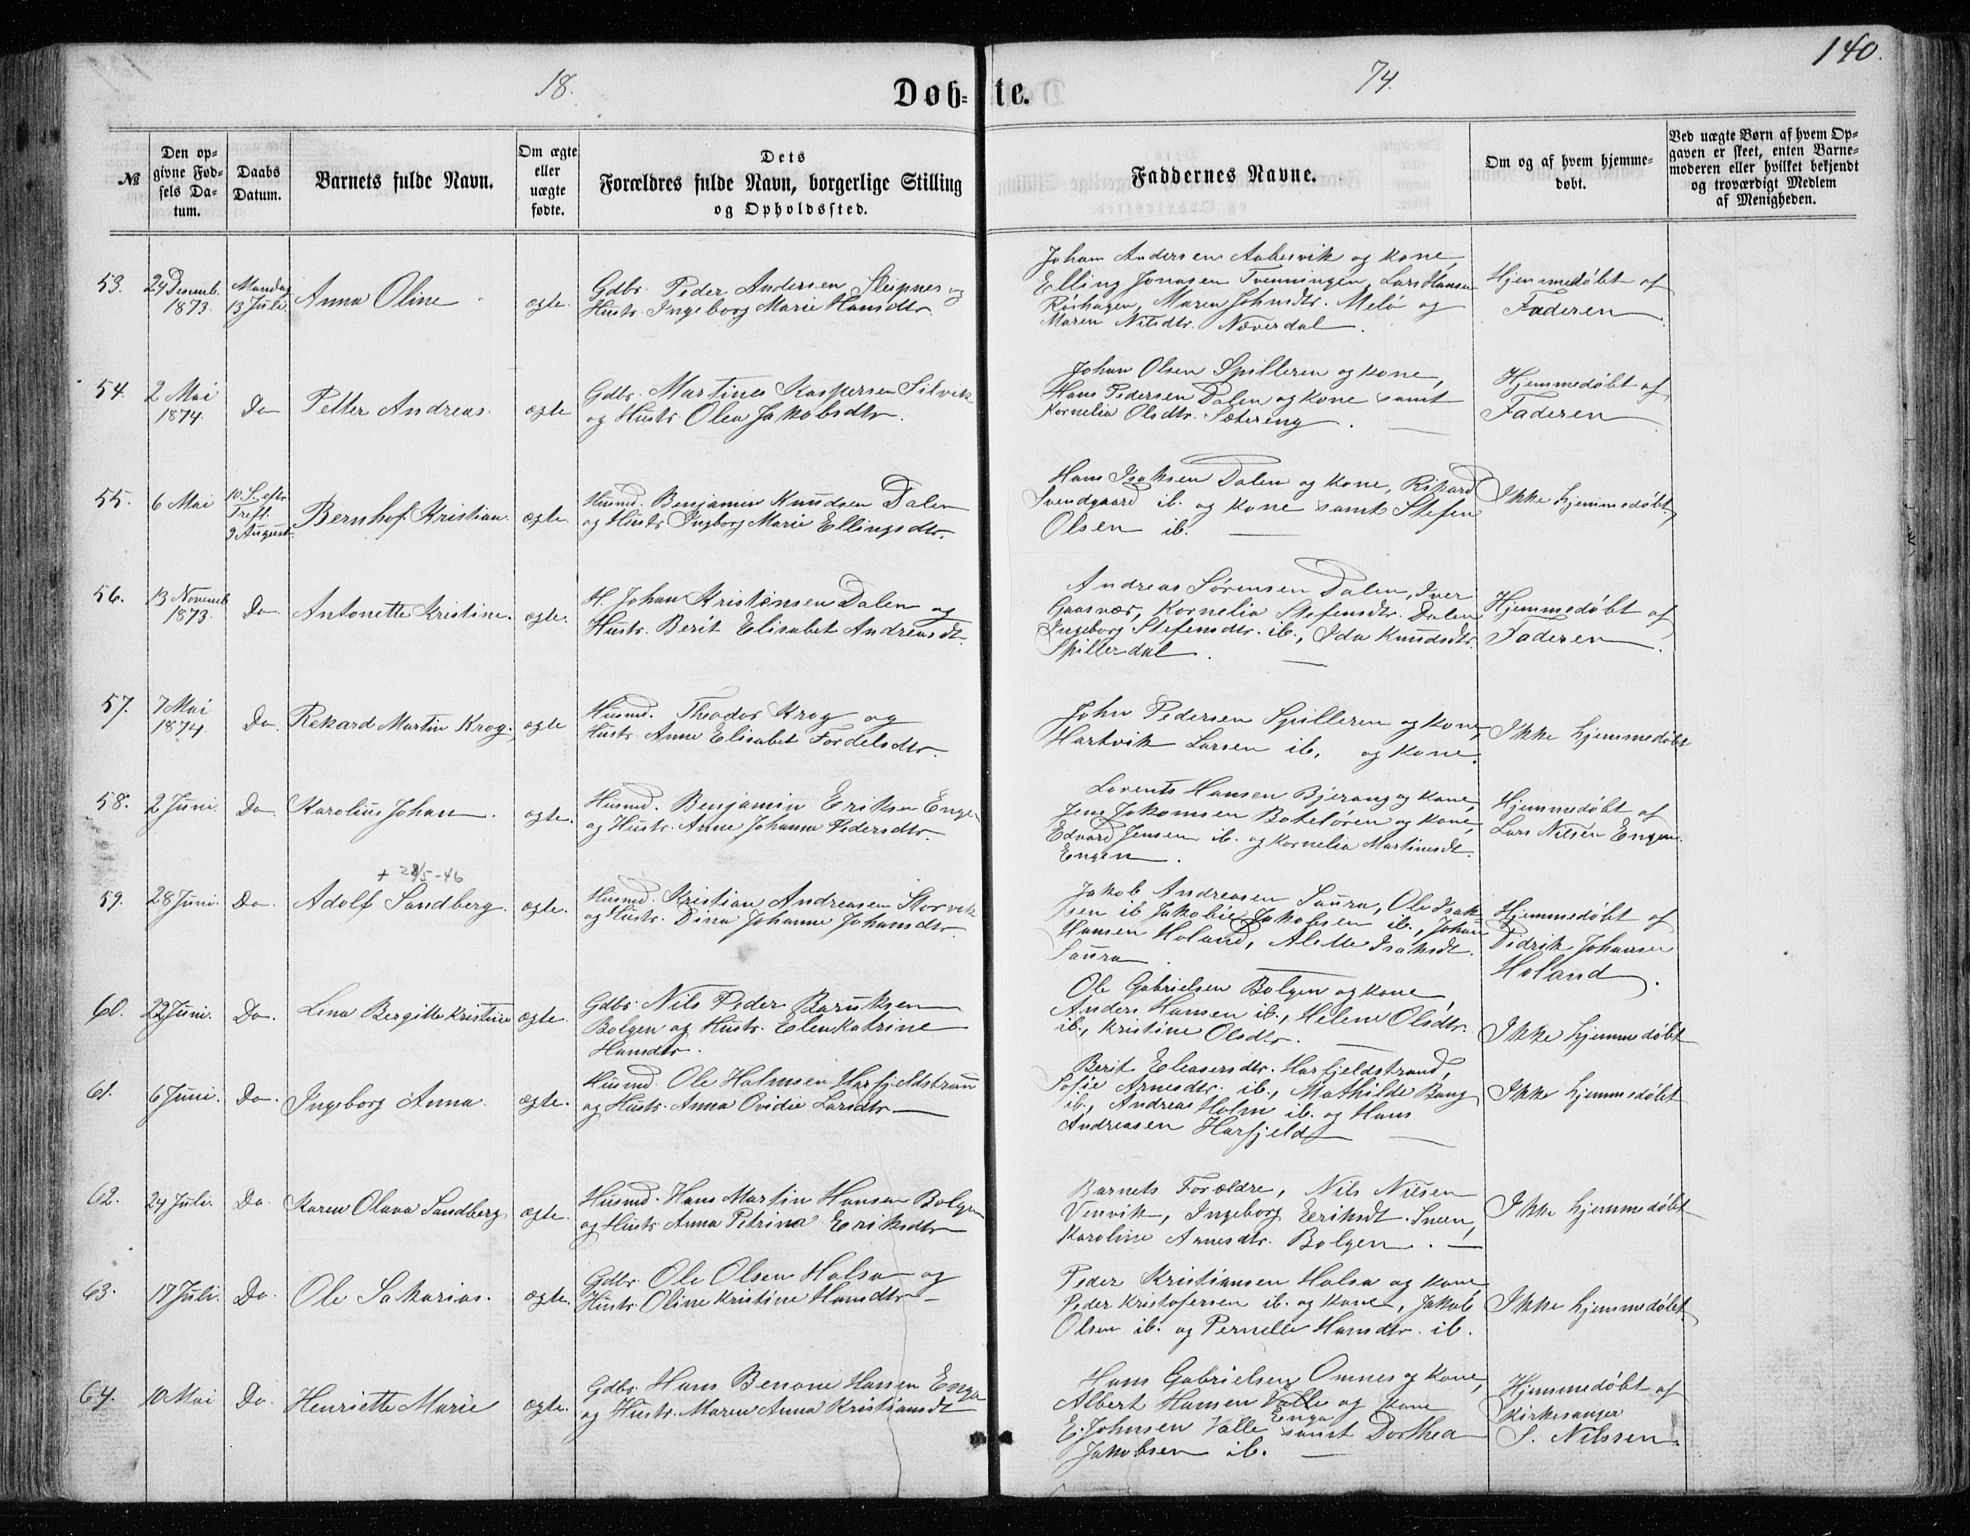 140.
18. Døb- te. 74.
№
Den op-
givne Fød-
sels Da-
tum.
Daabs
Datum.
Barnets fulde Navn.
Om ægte
eller
uægte
fødte.
Dets
Forældres fulde Navn, borgerlige Stilling
og Opholdssted.
Faddernes Navne.
Om og af hvem hjemme-
døbt.
Ved uægte Børn af hvem Op-
gaven er skeet, enten Barne-
moderen eller hvilket bekjendt
og troværdigt Medlem
af Menigheden.
53.
29 Decemb.
1873.
Mandag
13 Juli.
Anna Oline
ægte.
Gdbr. Peder Andersen Sleipnes og
Hustr. Ingeborg Marie Hansdtr.
Johan Andersen Aabesvik og Kone,
Elling Jonassen Tvenningen, Lars Hansen
Røshagen, Maren Johnsdtr. Melø og
Maren Nilsdtr. Næverdal.
Hjemmedøbt af
Faderen
54.
2 Mai
1874.
Do
Petter Andreas.
ægte
Gdbr. Martines Kaspersen Silvik
og Hustr. Olea Jakobsdtr.
Johan Olsen Spilleren og Kone,
Hans Pedersen Dalen og Kone samt
Kornelia Olsdtr. Sætereng.
Hjemmedøbt af
Faderen
55.
6 Mai
10. S. eftr
Tref.
9 August.
Bernhof Kristian
ægte.
Husmd. Benjamin Knudsen Dalen
og Hustr. Ingborg Marie Ellingsdtr.
Hans Isaksen Dalen og Kone, Rikard
Svendgaard ib. og Kone samt Stefen
Olsen ib.
Ikke hjemmedøbt
56.
13 Novemb
1873.
Do.
Antonette Kristine.
ægte.
H. Johan Kristensen Dalen og
Hustr. Berit Elisabet Andreasdt.
Andreas Sørensen Dalen, Iver
Gaasvær, Kornelia Stefensdtr. Dalen
Ingeborg Stefensdtr. ib., Ida Knudsdtr.
Spillerdal.
Hjemmedøbt af
Faderen.
57.
7 Mai
1874
Do.
Rekard Martin Krog.
ægte
Husmd. Theodor Krog og
Hustr. Anne Elisabet Fordelsdtr.
John Pedersen Spilleren og Kone,
Hartvik Larsen ib. og Kone.
Ikke hjemmedøbt
58.
2 Juni.
Do.
Karolius Johan.
ægte.
Husmd. Benjamin Eriksen Engen
og Hustr. Anne Johanna Pedersdtr.
Lorents Hansen Bjerang og Kone,
Jens Jakomsen Boteløren og Kone,
Edvard Jensen ib. og Kornelia Martinusdt.
Engen.
Hjemmedøbt af
Lars Nilsen Engen.
59.
28 Juni.
Do.
+ 28/5-46
Adolf Sandberg.
ægte.
Husmd. Kristian Andreasen Storvik
og Hustr. Dina Johanna Johansdtr.
Jakob Andreasen Saura, Ole Isak-
sen ib. Jakobie Jakobsen ib., Johan
Hansen Holand, Alette Isaksdt.
Saura
Hjemmedøbt af
Didrik Johansen
Holand.
60.
22 Juni.
Do.
Lina Bergitte Kristine
ægte.
Gdbr. Nils Peder Baruksen
Bolgen og Hustr. Elen Katrine
Hansdtr.
Ole Gabrielsen Bolgen og Kone,
Anders Hansen ib., Helene Olsdtr.
ib., Kristine Olsdtr.
Ikke hjemmedøbt
61.
6 Juni.
Do.
Ingeborg Anna.
ægte.
Husmd. Ole Holmsen Harfjeldstrand
og Hustr. Anna Ovidie Larsdtr.
Berit Eleasersdtr. Harfjeldstrand,
Sofie Arnesdtr. ib., Mathilde Bang
ib., Andreas Holm ib. og Hans
Andreasen Harfjeld
Ikke hjemmedøbt
62.
24 Juli.
Do.
Karen Olava Sandberg.
ægte.
Husmd. Hans Martin Hansen Bolgen
og Hustr. Anna Petrina Eriksdtr.
Barnets Forældre, Nils Nilsen
Venvik, Ingeborg Eeriksdt. Sneen,
Karoline Arnesdtr. Bolgen.
Ikke hjemmedøbt
63.
17 Juli.
Do.
Ole Sakarias.
ægte.
Gdbr. Ole Olsen Halsa og
Hustr. Oline Kristine Hansdtr.
Peder Kristiansen Halsa og Kone,
Peder Kristofersen ib. og Kone, Jakob
Olsen ib. og Pernelle Hansdtr. ib.
Ikke hjemmedøbt
64.
10 Mai
Do.
Henriette Marie
ægte.
Gdbr. Hans Benone Hansen Enga
og Hustr. Maren Anna Kristiansdt
Hans Gabrielsen Omnes og Kone,
Albert Hansen Valle og Kone
Enga
E. Johnsen Valle samt Dorthea
Jakobsen ib.
Hjemmedøbt af
Kirkesanger
S. Nilssen.